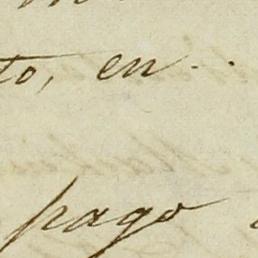 to, en..
pago